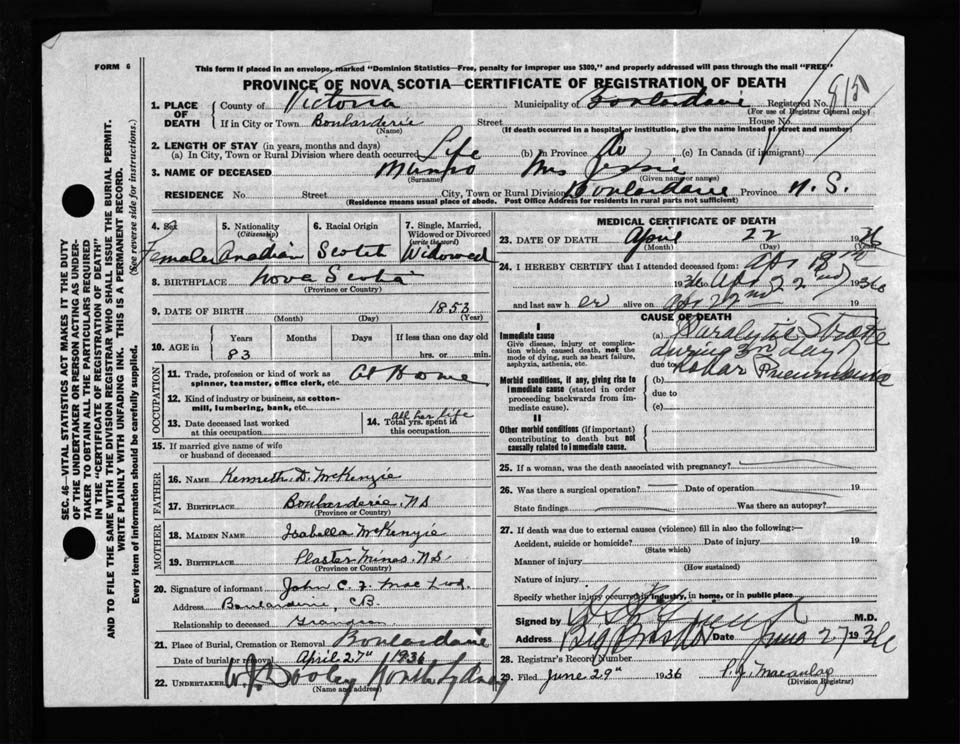 FORM 6
This form if placed in an envelope, marked "Dominion Statistics—Free, penalty for improper use $300," and properly addressed will pass through the mail "FREE"
PROVINCE OF NOVA SCOTIA—CERTIFICATE OF REGISTRATION OF DEATH
1. PLACE OF DEATH { County of Victoria Municipality of Boularderie Registered No. 915
(For use of Registrar General only)
If in City or Town Boularderie Street House No.
(Name) (If death occurred in a hospital or institution, give the name instead of street and number)
2. LENGTH OF STAY (in years, months and days)
(a) In City, Town or Rural Division where death occurred Life (b) In Province (c) In Canada (if immigrant)
3. NAME OF DECEASED Munro Mrs Jessie
(Surname) (Given name or names)
RESIDENCE No. Street City, Town or Rural Division Boularderie Province N. S.
(Residence means usual place of abode. Post Office Address for residents in rural parts not sufficient)
4. Sex 5. Nationality (Citizenship) 6. Racial Origin 7. Single, Married, Widowed or Divorced (write the word)
Female Canadian Scotch Widowed
8. BIRTHPLACE Nova Scotia
(Province or Country)
9. DATE OF BIRTH 1853
(Month) (Day) (Year)
10. AGE in { Years Months Days If less than one day old
83 hrs. or min.
OCCUPATION
11. Trade, profession or kind of work as spinner, teamster, office clerk, etc. At Home
12. Kind of industry or business, as cotton-mill, lumbering, bank, etc.
13. Date deceased last worked at this occupation 14. Total yrs. spent in this occupation All her life
15. If married give name of wife or husband of deceased
FATHER
16. NAME Kenneth D. McKenzie
17. BIRTHPLACE Boularderie, NS
(Province or Country)
MOTHER
18. MAIDEN NAME Isabella McKenzie
19. BIRTHPLACE Plaster Mines, NS
(Province or Country)
20. Signature of informant John C. J. Mac
Address Boularderie, CB.
Relationship to deceased Grandson
21. Place of Burial, Cremation or Removal Boularderie
Date of burial or removal April 27" 1936
22. UNDERTAKER W. J. Dooley North Sydney
(Name and address)
MEDICAL CERTIFICATE OF DEATH
23. DATE OF DEATH April 22 1936
(Month) (Day)
24. I HEREBY CERTIFY that I attended deceased from: Apr 18th
1936 to Apr 22nd 1936
and last saw h er alive on Apr 22nd 19
CAUSE OF DEATH
I
Immediate cause
Give disease, injury or complication which caused death, not the mode of dying, such as heart failure, asphyxia, asthenia, etc.
(a) Paralytic Stroke
during 3rd day
due to Lobar Pneumonia
Morbid conditions, if any, giving rise to immediate cause (stated in order proceeding backwards from immediate cause).
(b)
due to
(c)
II
Other morbid conditions (if important) contributing to death but not causally related to immediate cause.
25. If a woman, was the death associated with pregnancy?
26. Was there a surgical operation? Date of operation 19
State findings Was there an autopsy?
27. If death was due to external causes (violence) fill in also the following:—
Accident, suicide or homicide? Date of injury 19
(State which)
Manner of injury
(How sustained)
Nature of injury
Specify whether injury occurred in industry, in home, or in public place
Signed by M.D.
Address Big Bras d'Or Date June 27 1936
28. Registrar's Record Number
29. Filed June 29" 1936 P. J. Macaulay
(Division Registrar)
SEC. 46—VITAL STATISTICS ACT MAKES IT THE DUTY
OF THE UNDERTAKER OR PERSON ACTING AS UNDER-
TAKER TO OBTAIN ALL THE PARTICULARS REQUIRED
IN THE "CERTIFICATE OF REGISTRATION OF DEATH"
AND TO FILE THE SAME WITH THE DIVISION REGISTRAR WHO SHALL ISSUE THE BURIAL PERMIT.
WRITE PLAINLY WITH UNFADING INK. THIS IS A PERMANENT RECORD.
Every item of information should be carefully supplied. (See reverse side for instructions.)